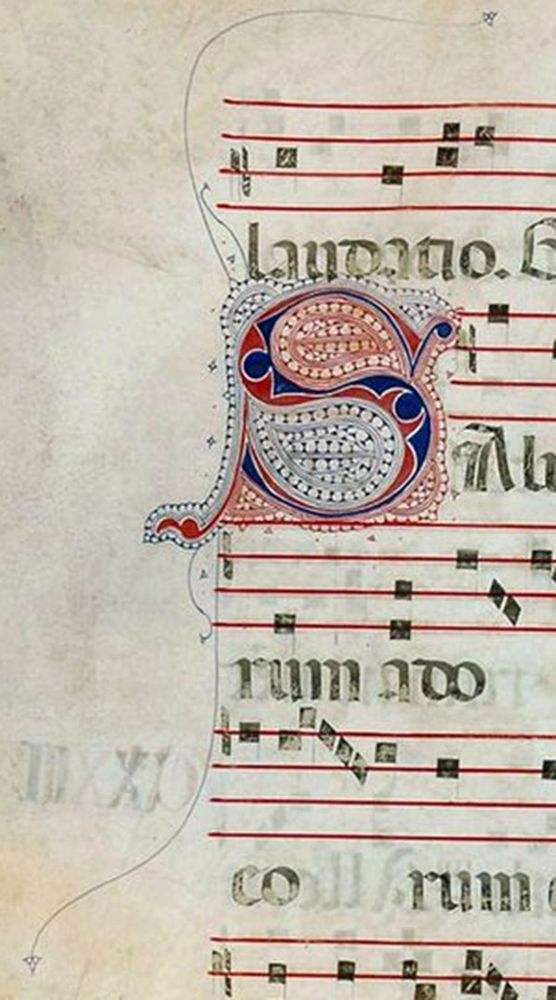 laudatio. G
SAlu
rum ado
co rum